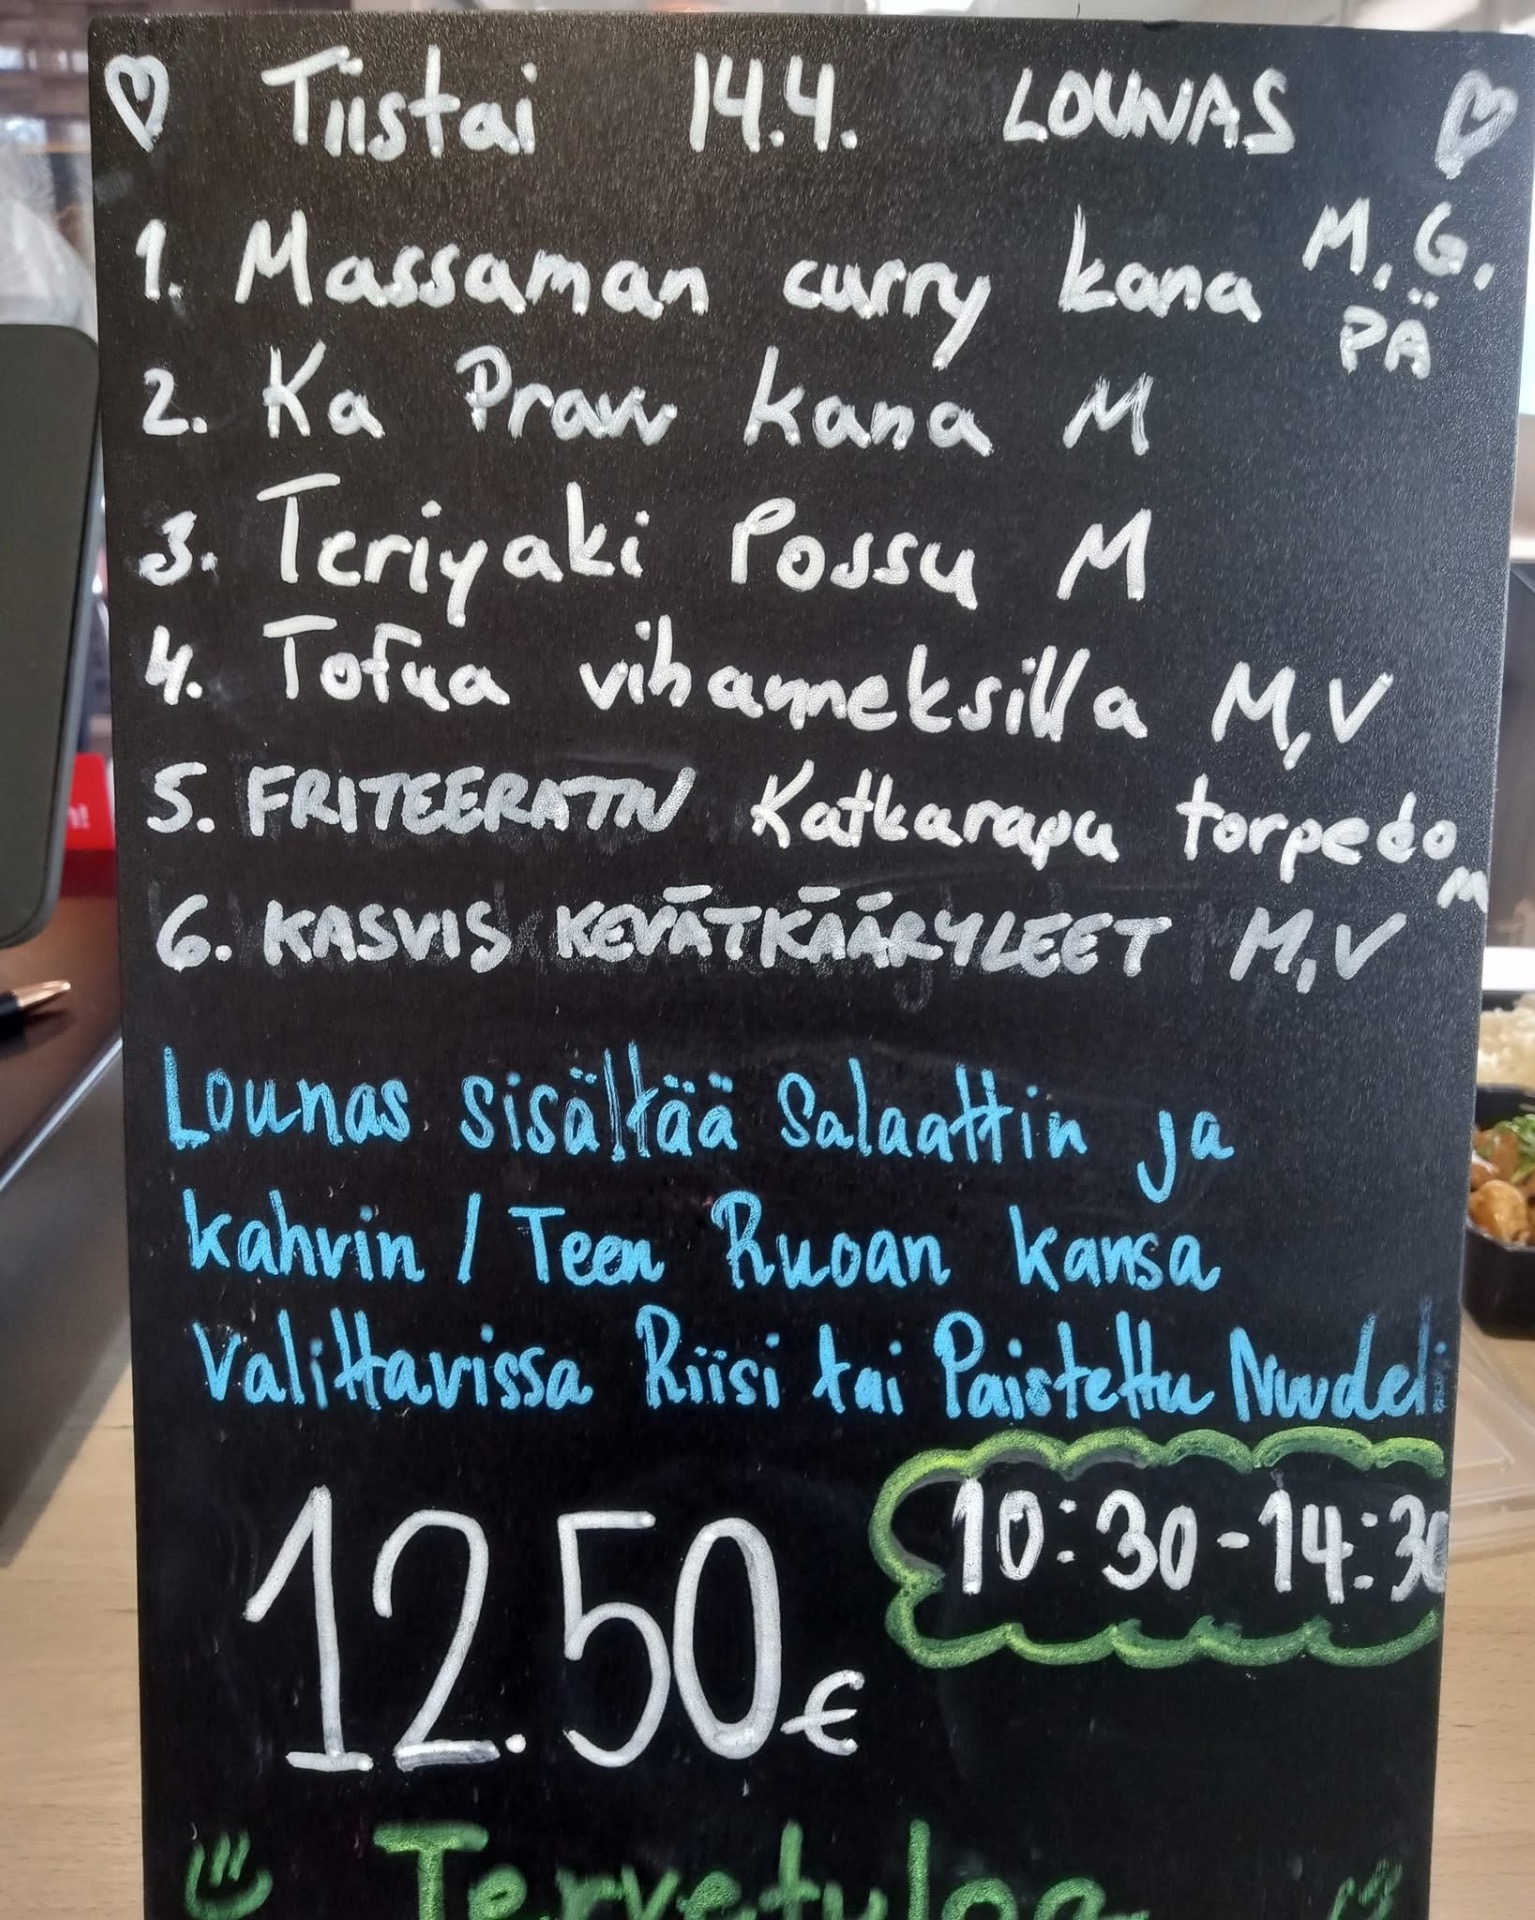 ♡ Tiistai 14.4. LOUNAS ♡
1. Massaman curry kana M, G, PÄ
2. Ka Praw kana M
3. Teriyaki Possu M
4. Tofua vihanneksilla M, V
5. FRITEERATTU Katkarapu torpedo M
6. KASVIS KEVÄTKÄÄRYLEET M, V
Lounas sisältää Salaattin ja
kahvin / Teen Ruoan kansa
Valittavissa Riisi tai Paistettu Nuudeli
12.50€
10:30-14:30
Tervetuloa